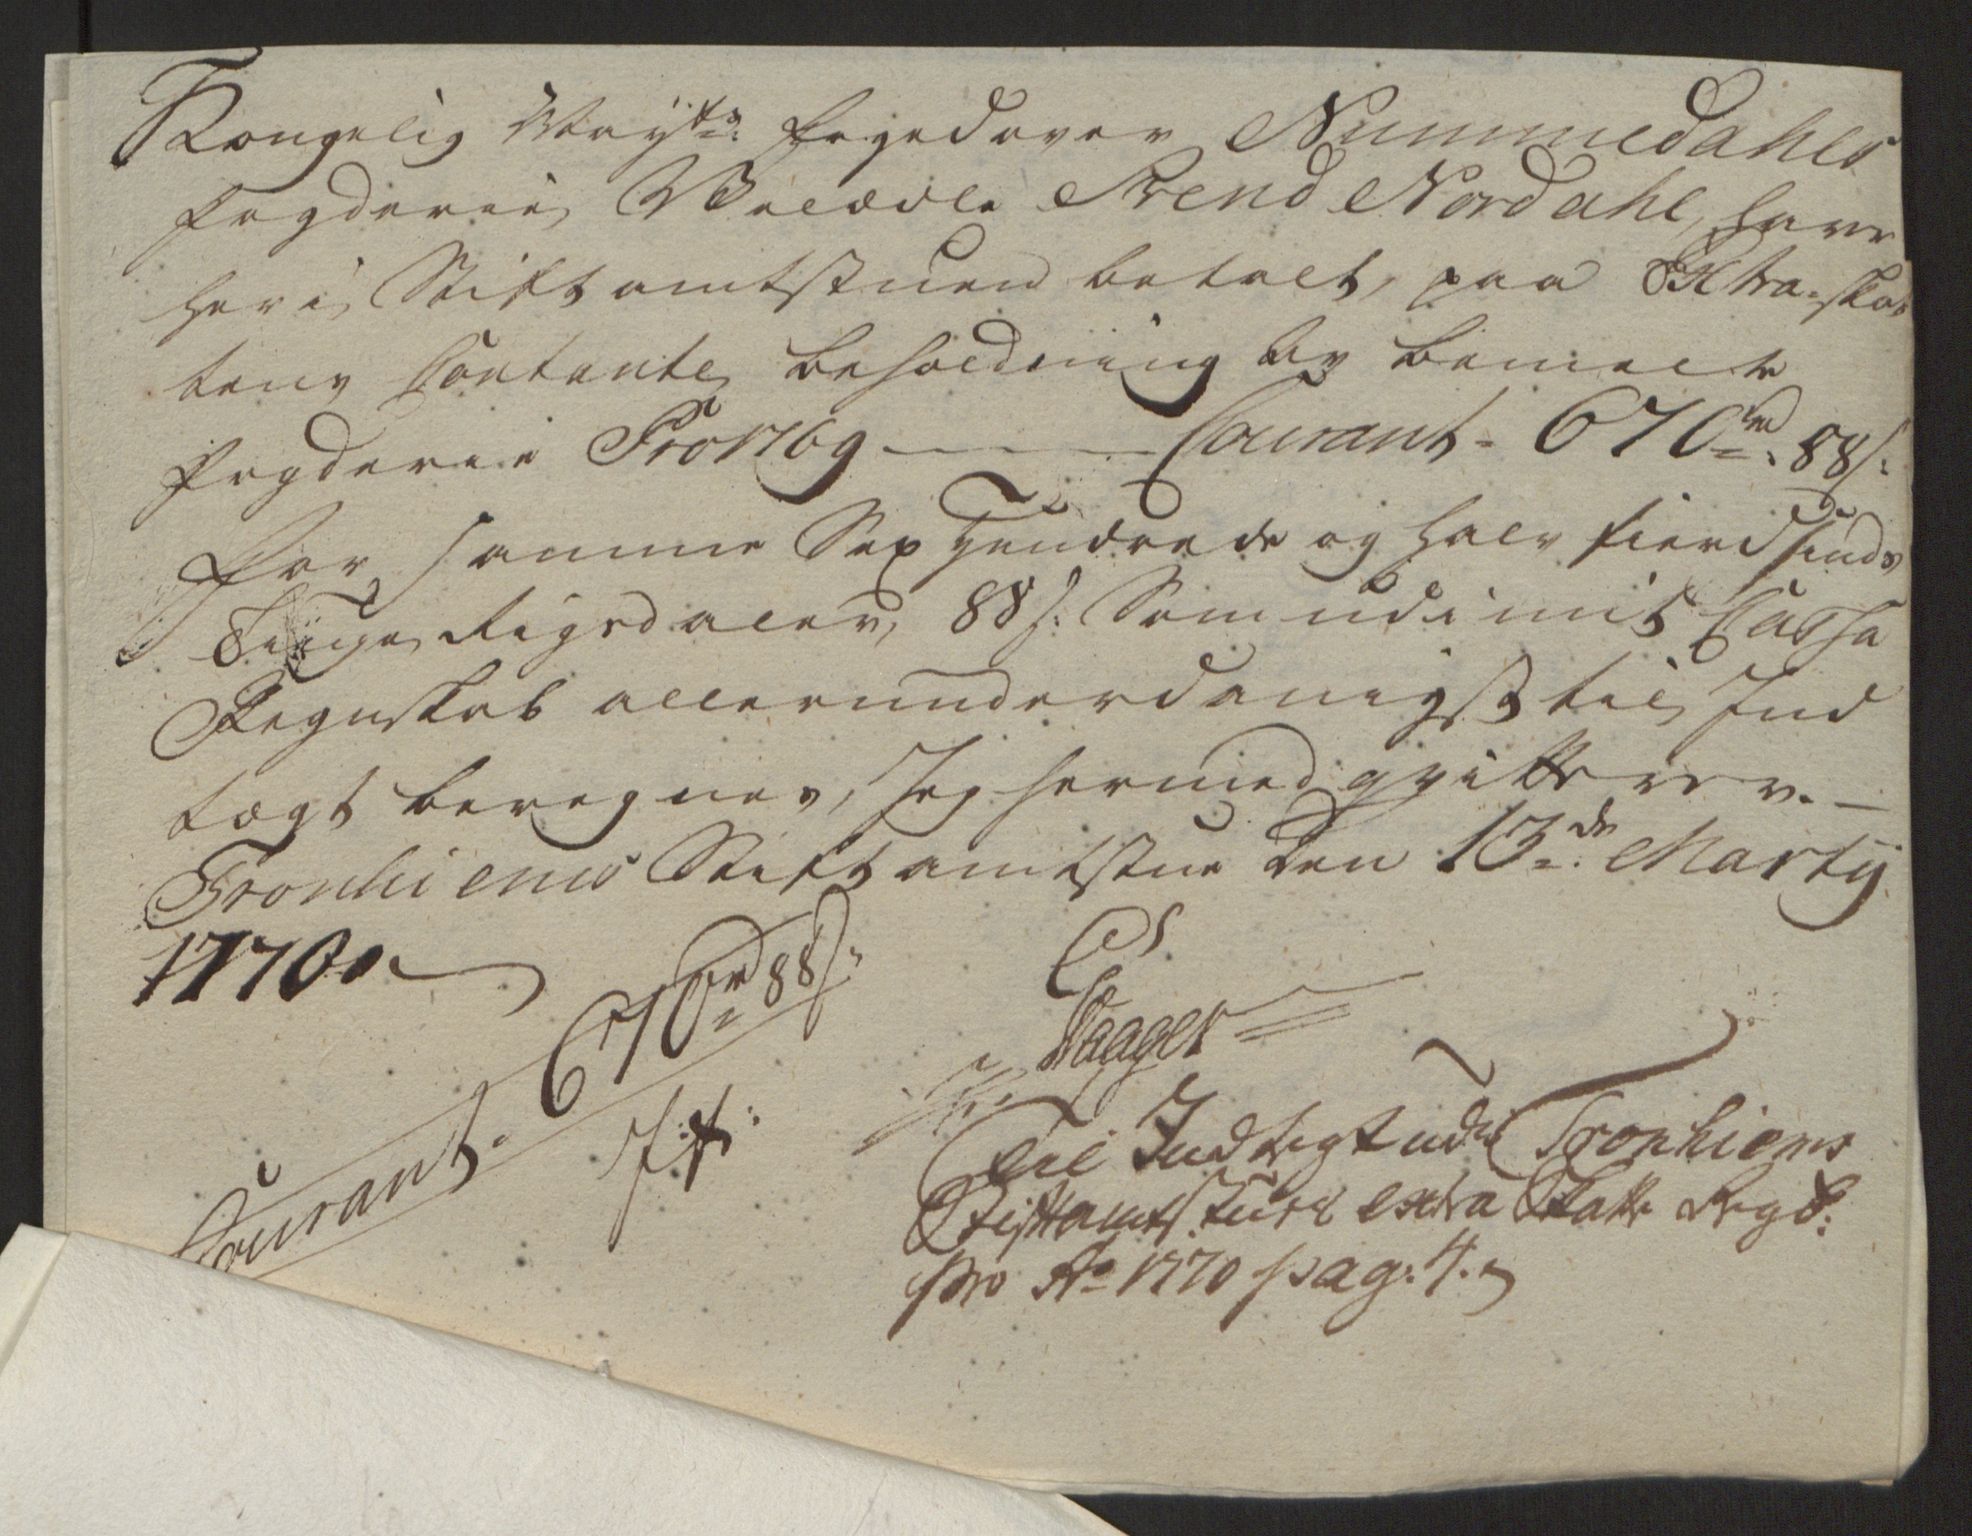 Kongelig Mayts: Foged over Nummedahls
Fogderie, Velædle Svend Nordahl, haver
her i Stiftamtstuen betalt, paa Extra-Skat
tens Contante beholdning af bemelte
Fogderie Pro 1769 ——— Courant - 670 rd. 88 s:
For samme Sex Hundrede og halv fierdsinds
Tiuge Rigsdaler, 88 s: Som udi mit Cassa
Regnskab allerunderdanigst til Ind
tægt beregnes, Jeg hermed qvitterer. —
Tronhiems Stiftamtstue den 13de: Martij
1770.
Courant. 670 rd 88 s:
Til Indtegt udi Tronhiems
Stiftamtstues extra Skatte Regsk:
pro Ao 1770 pag: 4.